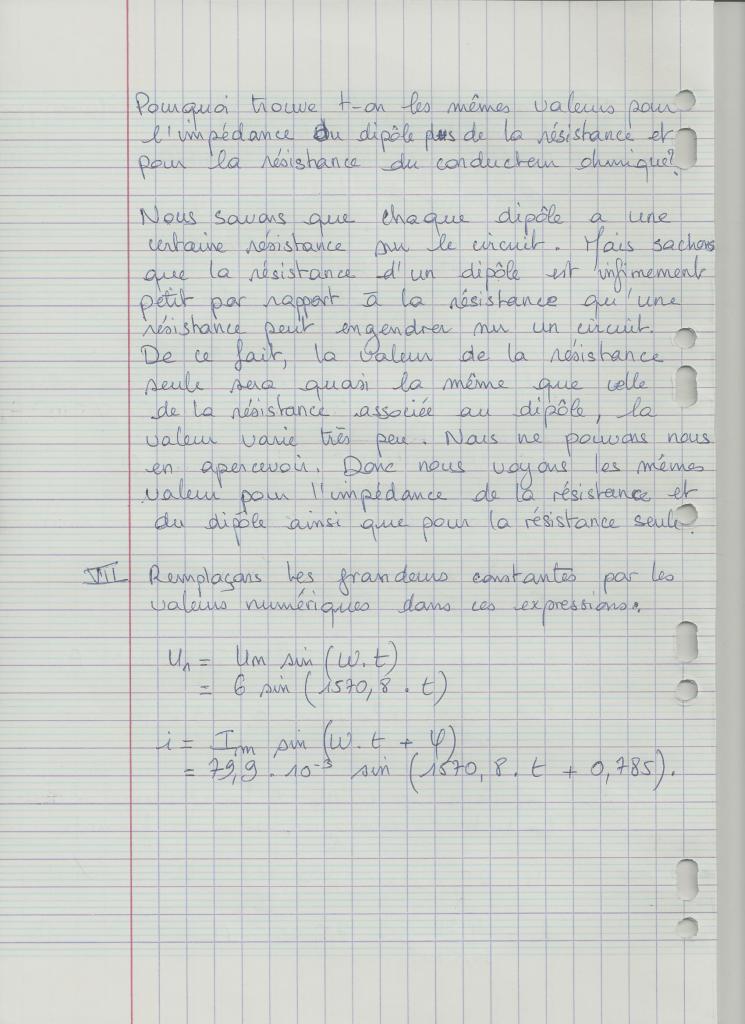 Pourquoi trouve t-on les mêmes valeurs pour
l'impédance du dipôle de la résistance et
pour la résistance du conducteur ohmique?
Nous savons que chaque dipôle a une
certaine résistance sur le circuit. Mais sachons
que la résistance d'un dipôle est infimement
petit par rapport à la résistance qu'une
résistance peut engendrer sur un circuit.
De ce fait, la valeur de la résistance
seule sera quasi la même que celle
de la résistance associée au dipôle, la
valeur varie très peu. Nous ne pouvons nous
en apercevoir. Donc nous voyons les mêmes
valeur pour l'impédance de la résistance et
du dipôle ainsi que pour la résistance seule.
VII Remplaçons les grandeurs constantes par les
valeurs numériques dans ces expressions.
U₁ = Um sin (ω.t)
= 6 sin (1570,8 . t)
i = Im sin (ω.t + φ)
= 79,9 . 10⁻³ sin (1570,8 . t + 0,785).